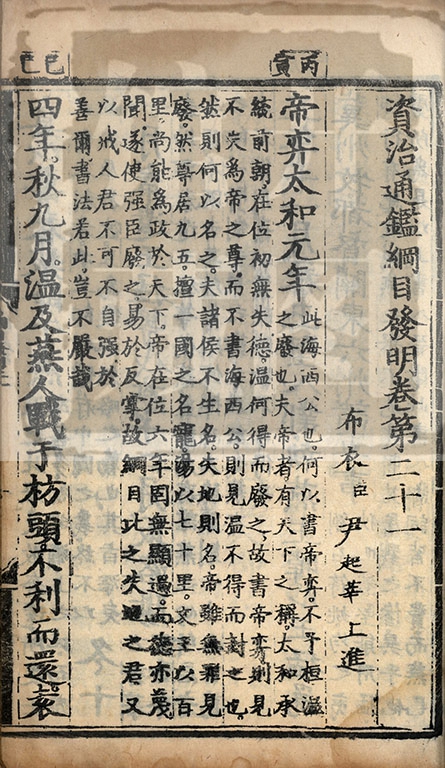 丙寅
己巳
資治通鑑綱目發明卷第二十一
布衣臣尹起莘上進
帝弈太和元年
此海西公也。何以書帝弈。不予桓溫
之廢也。夫帝者。有天下之稱。太和承
統前朝。在位初無失德。溫何得而廢之。故書帝弈。則見
不失爲帝之尊。而不書海西公。則見溫不得而封之也。
然則何以名之。夫諸侯不生名。失地則名。帝雖無罪見
廢。然尊居九五。擅一國之名寵。湯以七十里。文王以百
里。尚能爲政於天下。帝在位六年。固無顯過。而德亦蔑
聞。遂使强臣廢之。易於反掌。故綱目比之失地之君。又
以戒人君不可不自强於
善爾。書法若此。豈不嚴哉
四年。秋九月。溫及燕人戰于枋頭不利而還。袁